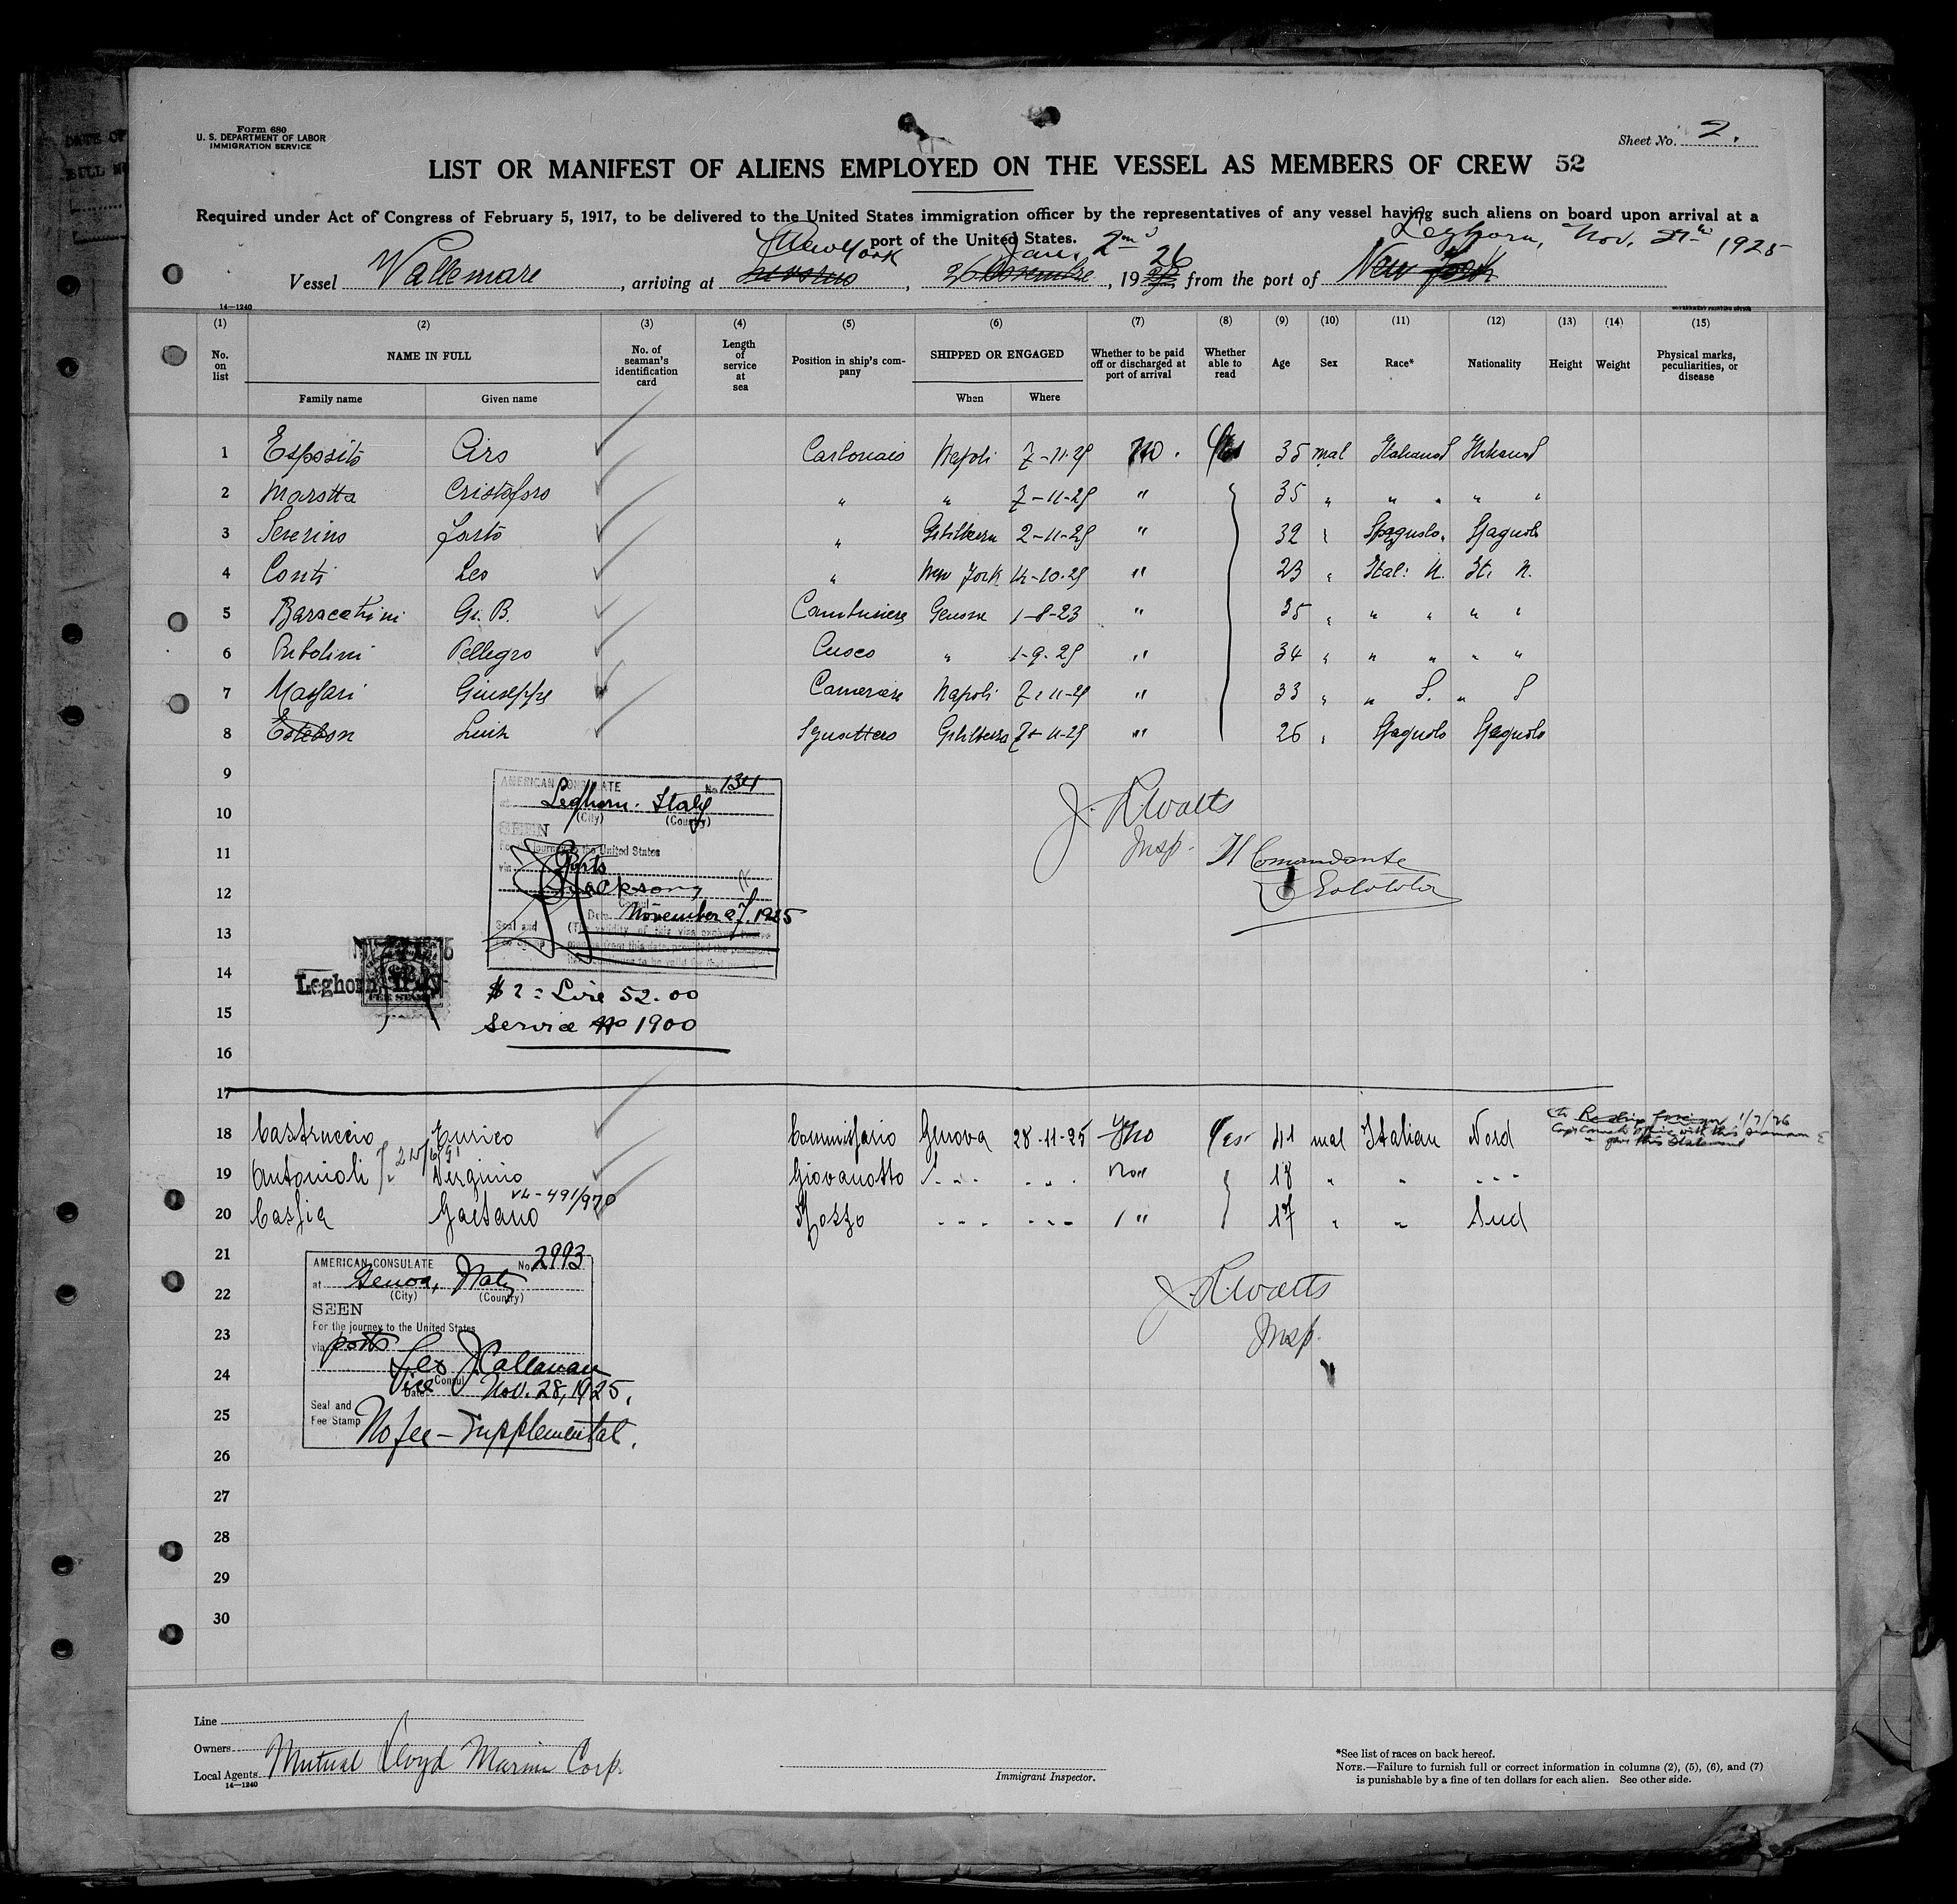 Form 680
U. S. DEPARTMENT OF LABOR
IMMIGRATION SERVICE
Sheet No. 2.
LIST OR MANIFEST OF ALIENS EMPLOYED ON THE VESSEL AS MEMBERS OF CREW 52
Required under Act of Congress of February 5, 1917, to be delivered to the United States immigration officer by the representatives of any vessel having such aliens on board upon arrival at a
port of the United States.
New York Jan. 2nd 26 Leghorn, Nov. 27th 1925
Vessel Vallemare, arriving at , , 19 from the port of New York
14—1240
(1) (2) (3) (4) (5) (6) (7) (8) (9) (10) (11) (12) (13) (14) (15)
No. on list NAME IN FULL No. of seaman's identification card Length of service at sea Position in ship's company SHIPPED OR ENGAGED Whether to be paid off or discharged at port of arrival Whether able to read Age Sex Race* Nationality Height Weight Physical marks, peculiarities, or disease
Family name Given name When Where
1 Esposito Ciro Carbonaio Napoli 7-11-25 No. Yes 35 mal
2 Marotta Cristoforo " " 7-11-25 " 35 " " " " "
3 Severino " 2-11-25 " 32 " Spagnolo Spagnolo
4 Conti Leo " New York 14-10-25 " 23 " Ital: N. It. N.
5 Baracchini Gi. B. Cambusiere Genova 1-8-23 " 35 " " " " "
6 Pellegro Cuoco " 1-9-25 " 34 " " " " "
7 Massari Giuseppe Cameriere Napoli 7-11-25 " 33 " " S. " S
8 Esteban Luis Sguattero 11-25 " 26 " Spagnolo Spagnolo
9
AMERICAN CONSULATE No 134
at Leghorn. Italy
(City) (Country)
10
SEEN
For the journey to the United States
11
via Ports
J. R. Watts
Insp.
Il Comandante
12
Jackson
Consul
Date November 27. 1925
13
Seal and Fee Stamp
14
Leghorn Italy
$2 = Lire 52.00
15
Service No 1900
16
17
18 Castruccio Enrico Commissario Genova 28-11-25 No Yes 41 mal Italian Nord
1/7/26
19 Antonioli Verginio Giovanotto 18 " " "
20 Cassia Gaetano Mozzo " 17 " " Sud
21
AMERICAN CONSULATE No 2993
at Genoa, Italy
22
(City) (Country)
SEEN
For the journey to the United States
23
via ports
J. R. Watts
Insp.
Leo J. Callanan
24
Vice Consul
Date Nov. 28, 1925.
25
Seal and
Fee Stamp No fee — Supplemental.
26
27
28
29
30
Line
Owners
Local Agents Mutual Lloyd Marine Corp.
14—1240
Immigrant Inspector.
*See list of races on back hereof.
NOTE.—Failure to furnish full or correct information in columns (2), (5), (6), and (7)
is punishable by a fine of ten dollars for each alien. See other side.